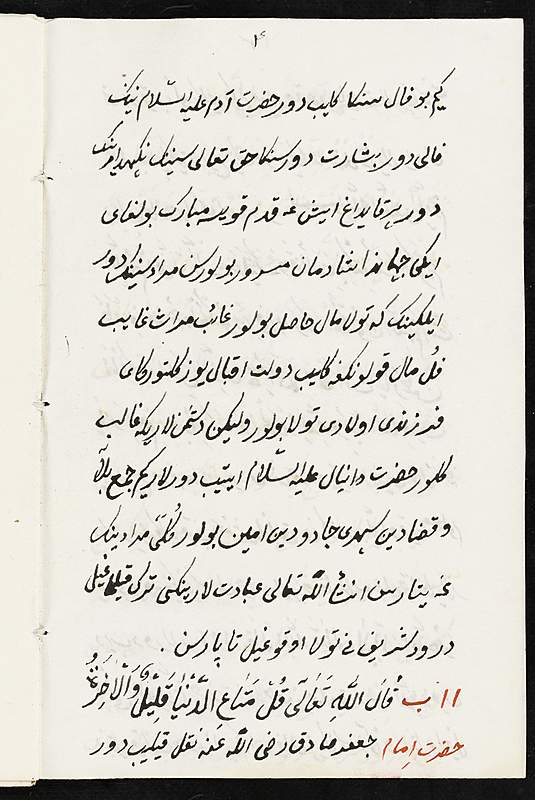 ۴
کیم بو فال سنکا کلیب دور حضرت آدم علیه السلام نینک
فالی دور بشارت دور سنکا حق تعالی سنینک نکهدارینک
دور هر قایداغ ایش غه قدم قویسه مبارک بولغای
ایکی جهاندا شادمان مسرور بولورسن مراد سنینک دور
ایلکینک که تولا مال حاصل بولور غائب میراث غایب
قل مال قولونکغه کلیب دولت اقبال یوز کلتورکای
فرزندی اولادی تولا بولور ولیکن دشمن لاریکه غالب
کلور حضرت دانیال علیه السلام ایتیب دورلار کیم جمع بلا
و قضادین سحری جادودین امین بولور کلی مرادینک
غه یتارسن انشأ الله تعالی عبادت لارینکنی ترک قیلماغیل
درود شریف نی تولا اوقوغیل تاپارسن .
۱۱ ب قَالَ اللهِ تَعَالَی قُلْ مَتَاعِ الدُّنْیَا قَلِیْلٌ وَالْاٰخِرَةُ
حضرت امام جعفر صادق رضی الله عنه نقل قیلیب دور